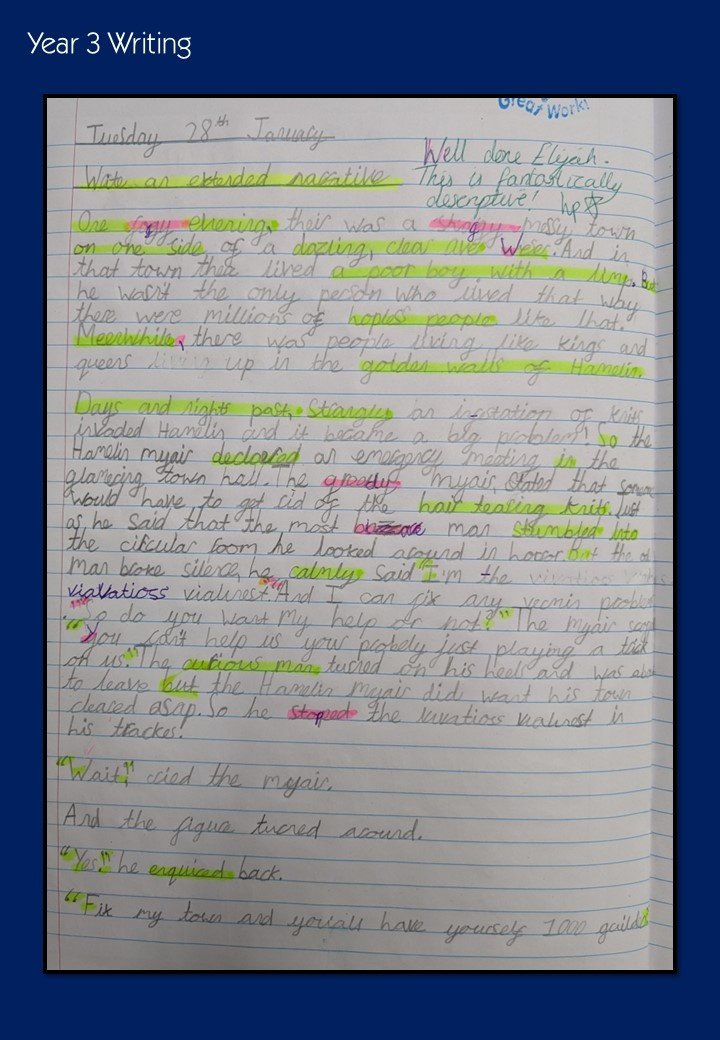 Year 3 Writing
Great Work!
Tuesday 28th January
Well done Elijah.
Write an extended narative
This is fantastically
descriptive! hp
One foggy evening, their was a stingy mossy town
on one side of a dazling, clear river Weser. And in
that town ther lived a poor boy with a limp. But
he wasn't the only person who lived that way
there were millions of hopless people like that.
Meenwhile, there was people living like kings and
queens living up in the golden walls of Hamelin.
Days and nights past. Strangly an infstation of knits
invaded Hamelin and it became a big problem! So the
Hamelin myair decloered an emergency meeting in the
glamering town hall. The greedy myair, stated that
would have to get rid of the hair tearing knits. Just
as he said that the most man stumbled into
the circular room he looked around in horror. But the
man broke silence, he calmly said "I'm the
viallatioss vialinest. "And I can fix any vermin problem
. So do you want my help or not?" The myair
"You can't help us your probely just playing a trick
on us". The curious man turned on his heels and was
to leave but the Hamelin myair did want his town
cleared asap. So he stoped the vialinest in
his trackes!
"Wait!" cried the myair.
And the figure turned around.
"Yes!" he enquired back.
"Fix my town and youall have yourself 1000 gailders